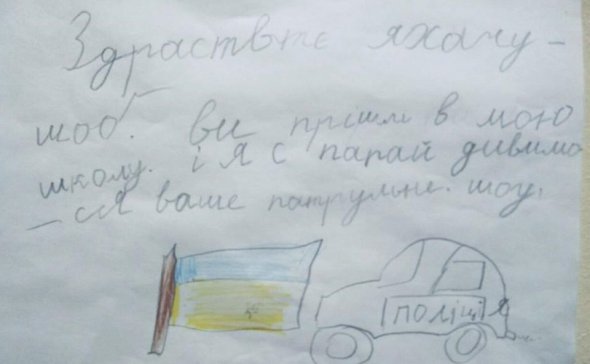 Здраствте яхачу-
щоб. ви прішли в мою
школу. і я с папай дивимо
-сЯ ваше патрульне. шоу.
поліція